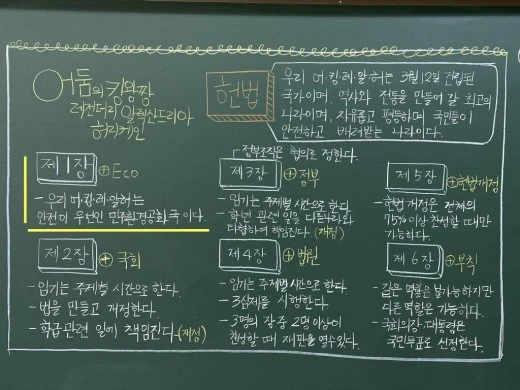 어둠의 킹왕짱
레전더리 알렉산드리아
허리케인
헌법
우리 어·킹·레·알·허는 3월 12일 건립된
국가이며, 역사와 전통을 만들어 갈 최고의
나라이며, 자유롭고 평등하며 국민들이
안전하고 바라는 나라이다.
제1장 + Eco
- 우리 어·킹·레·알·허는
안전이 우선인 민주환경공화국이다.
제2장 + 국회
- 임기는 주제별 시간으로 한다.
- 법을 만들고 개정한다.
- 학급관련 일에 책임진다. (재정)
- 정부조직은 협의로 정한다.
제3장 + 정부
- 임기는 주제별 시간으로 한다.
- 학년 관련 일을 다른나라와
다함하여 책임진다. (재정)
제4장 + 법원
- 임기는 주제별 시간으로 한다.
- 3심제를 시행한다.
- 3명의 장 중 2명 이상이
찬성할 때 재판을 열 수 있다.
제5장 + 헌법개정
- 헌법 개정은 전체의
75% 이상 찬성할 때만
가능하다.
제6장 + 부칙
- 같은 역할은 불가능하지만
다른 역할은 가능하다.
- 국회의장·대통령은
국민투표로 선정한다.